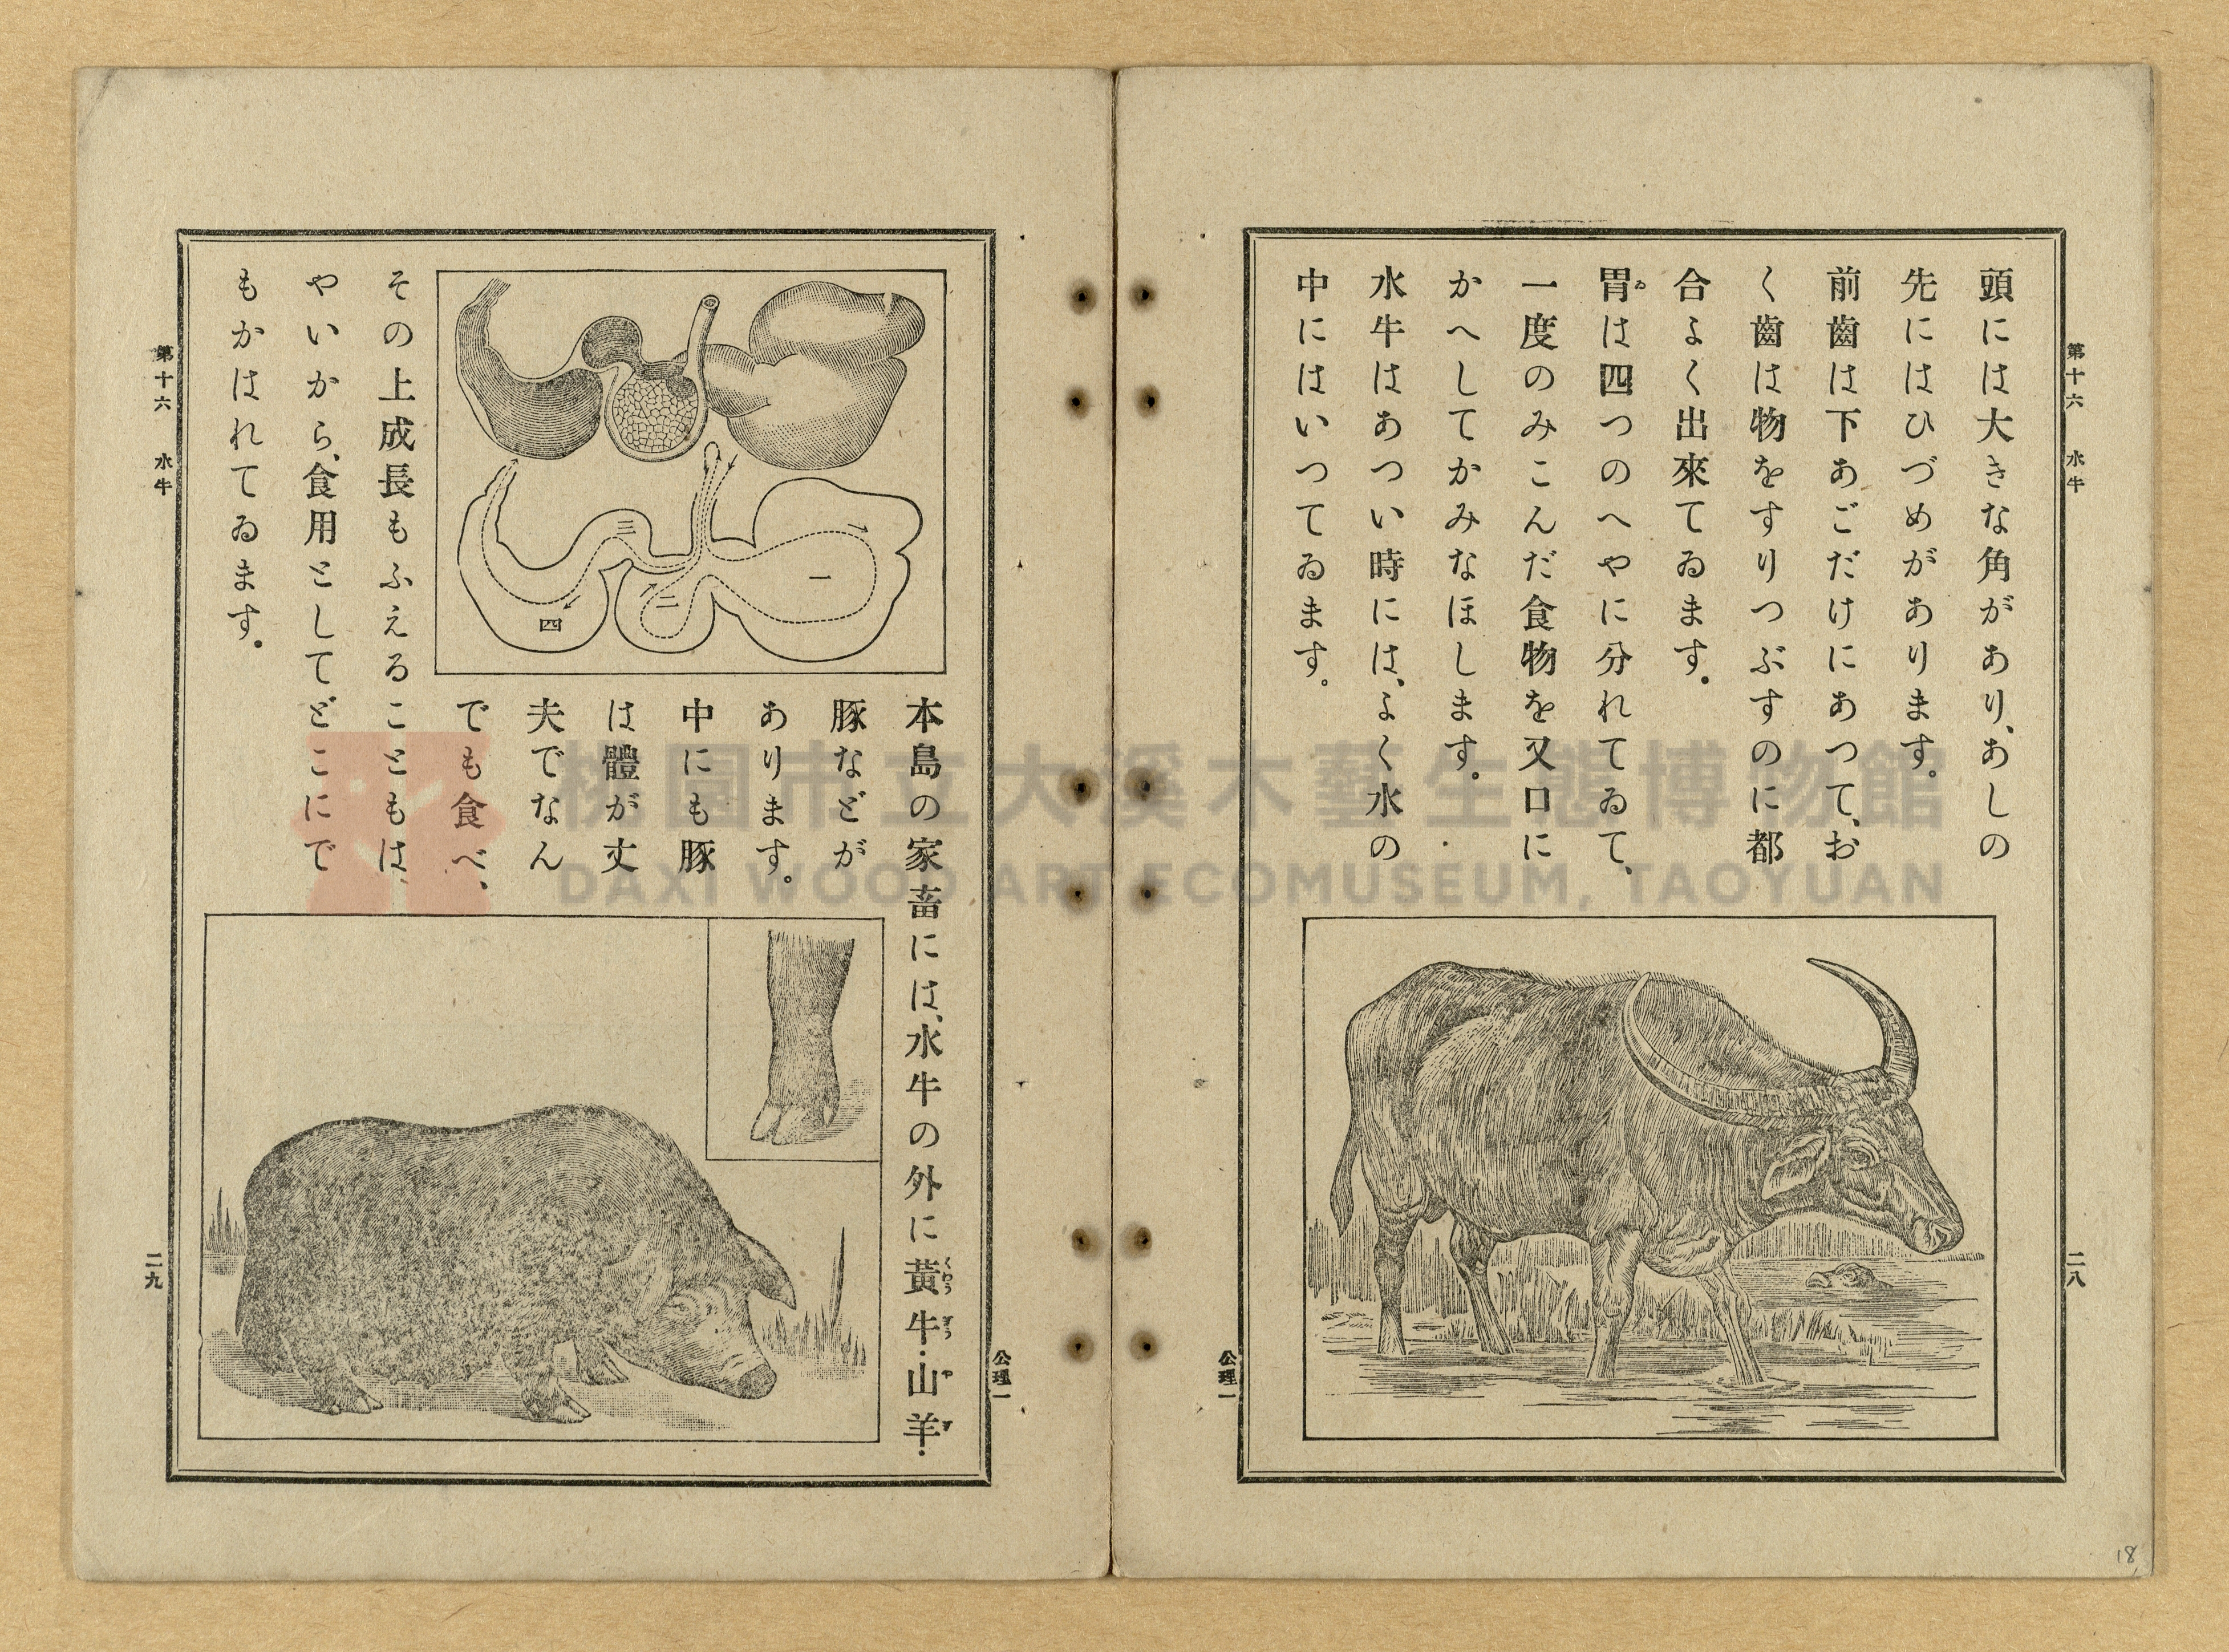 第十六　水牛
二八
頭には大きな角があり、あしの
先にはひづめがあります。
前齒は下あごだけにあつて、お
く齒は物をすりつぶすのに都
合よく出來てゐます。
胃は四つのへやに分れてゐて、
ゐ
一度のみこんだ食物を又口に
かへしてかみなほします。
水牛はあつい時には、よく水の
中にはいつてゐます。
公理一
18
公理一
本島の家畜には、水牛の外に黃牛・山羊・
くわう　ぎう　や　ぎ
豚などが
あります。
中にも豚
は體が丈
夫でなん
でも食べ、
その上成長もふえることもは
やいから、食用としてどこにで
もかはれてゐます。
一
二
三
四
第十六　水牛
二九
桃園市立大溪木藝生態博物館
DAXI WOOD ART ECOMUSEUM, TAOYUAN